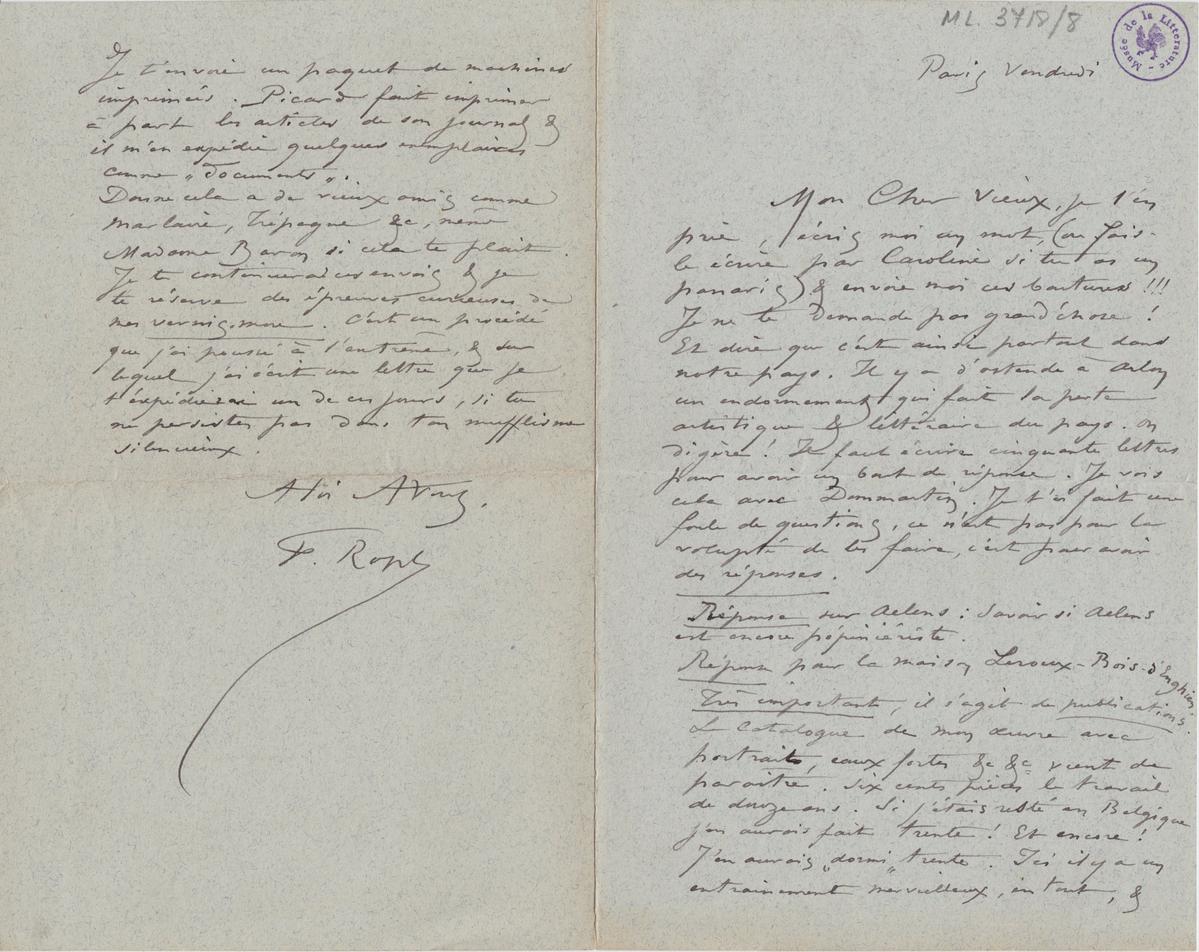 ML. 3718/8
Musée de la Littérature
Paris Vendredi
Mon Cher Vieux, je t'en
prie, écris moi un mot, (ou fais-
le écrire par Caroline si tu as un
panaris) & envoie moi ces boutures !!!
Je ne te demande pas grand'chose !
Et dire que c'est ainsi partout dans
notre pays. Il y a d'ostende à Arlon
un endormement qui fait la perte
artistique & littéraire du pays. on
digère ! Il faut écrire cinquante lettres
pour avoir un bout de réponse. Je vois
cela avec Dommartin. Je t'ai fait une
foule de questions, ce n'est pas pour la
volupté de les faire, c'est pour avoir
des réponses.
Réponse sur Aelens : Savoir si Aelens
est encore pépiniériste.
Réponse pour la maison Leroux-Bois-d'Enghien.
Très important, il s'agit de publications.
Le Catalogue de mon œuvre avec
portraits, eaux fortes &c &c vient de
paraître. Six cents pièces le travail
de douze ans. Si j'étais resté en Belgique
j'en aurais fait trente ! Et encore !
J'en aurais „dormi" trente. Ici il y a un
entrainement merveilleux, en tout, &
Je t'envoie un paquet de machines
imprimées. Picard fait imprimer
à part les articles de son journal &
il m'en expédie quelques exemplaires
comme „documents".
Donne cela a de vieux amis comme
Marlaire, Trépagne &c, même
Madame Baron si cela te plait.
Je te continuerai ces envois & je
te réserve des épreuves curieuses de
mes vernis-mous. C'est un procédé
que j'ai poussé à l'extrême, & sur
lequel j'ai écrit une lettre que je
t'expédierai un de ces jours, si tu
ne persistes pas dans ton mufflisme
silencieux.
A toi A Vous,
F. Rops